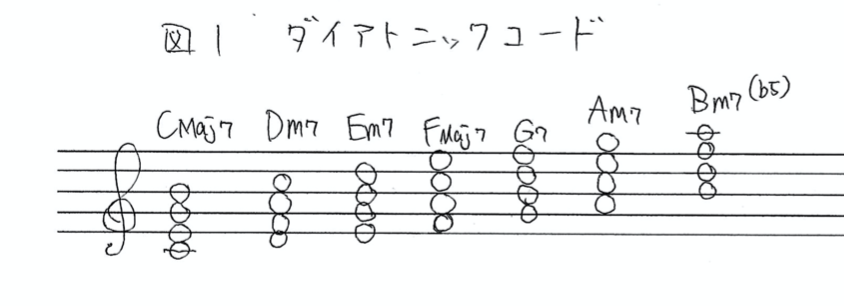 図1 ダイアトニックコード
CMaj7 Dm7 Em7 FMaj7 G7 Am7 Bm7(b5)